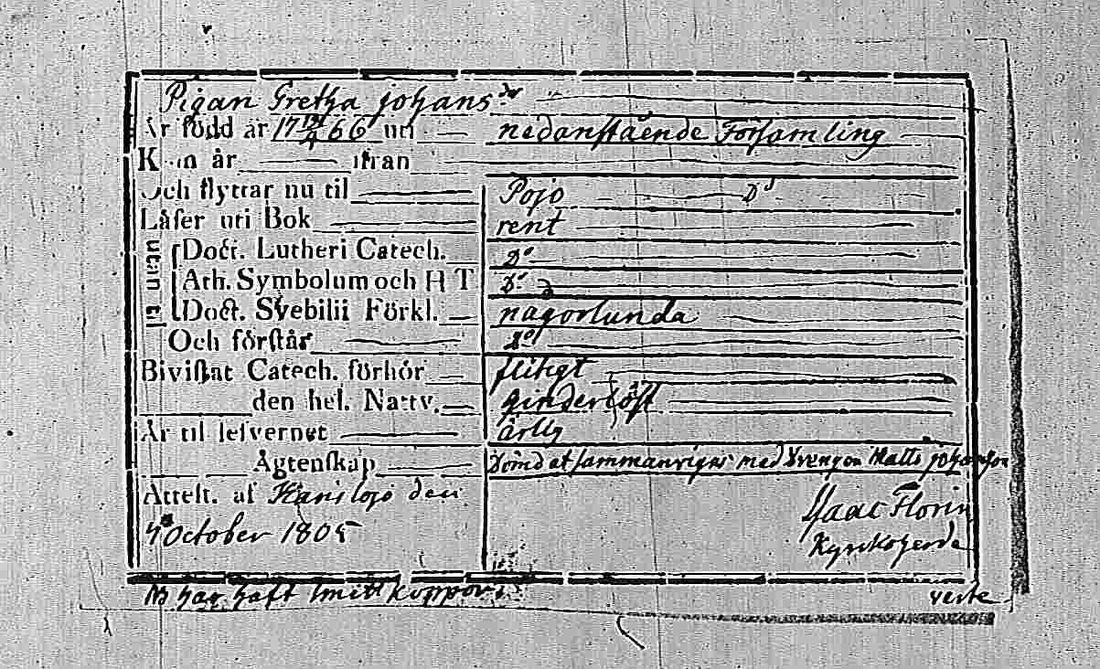 Pigan Gretha Johansdr
Är född år 17 12/4 66 uti nedanstående Församling
Kom år ifrån
Och flyttar nu til Pojo Do
Låser uti Bok rent
utan
Doct. Lutheri Catech. Do
Ath. Symbolum och H T Do
Doct. Svebilii Förkl. någorlunda
Och förstår Do
Bivistat Catech. förhör flitigt
den hel. Nattv.
Är til lefvernet ärlig
Ägtenskap med Drengen Matts Johansson
Attest. af Karislojo den
4 October 1805
Isaac Florin
Kyrkoherde
NB har haft Koppor
verte